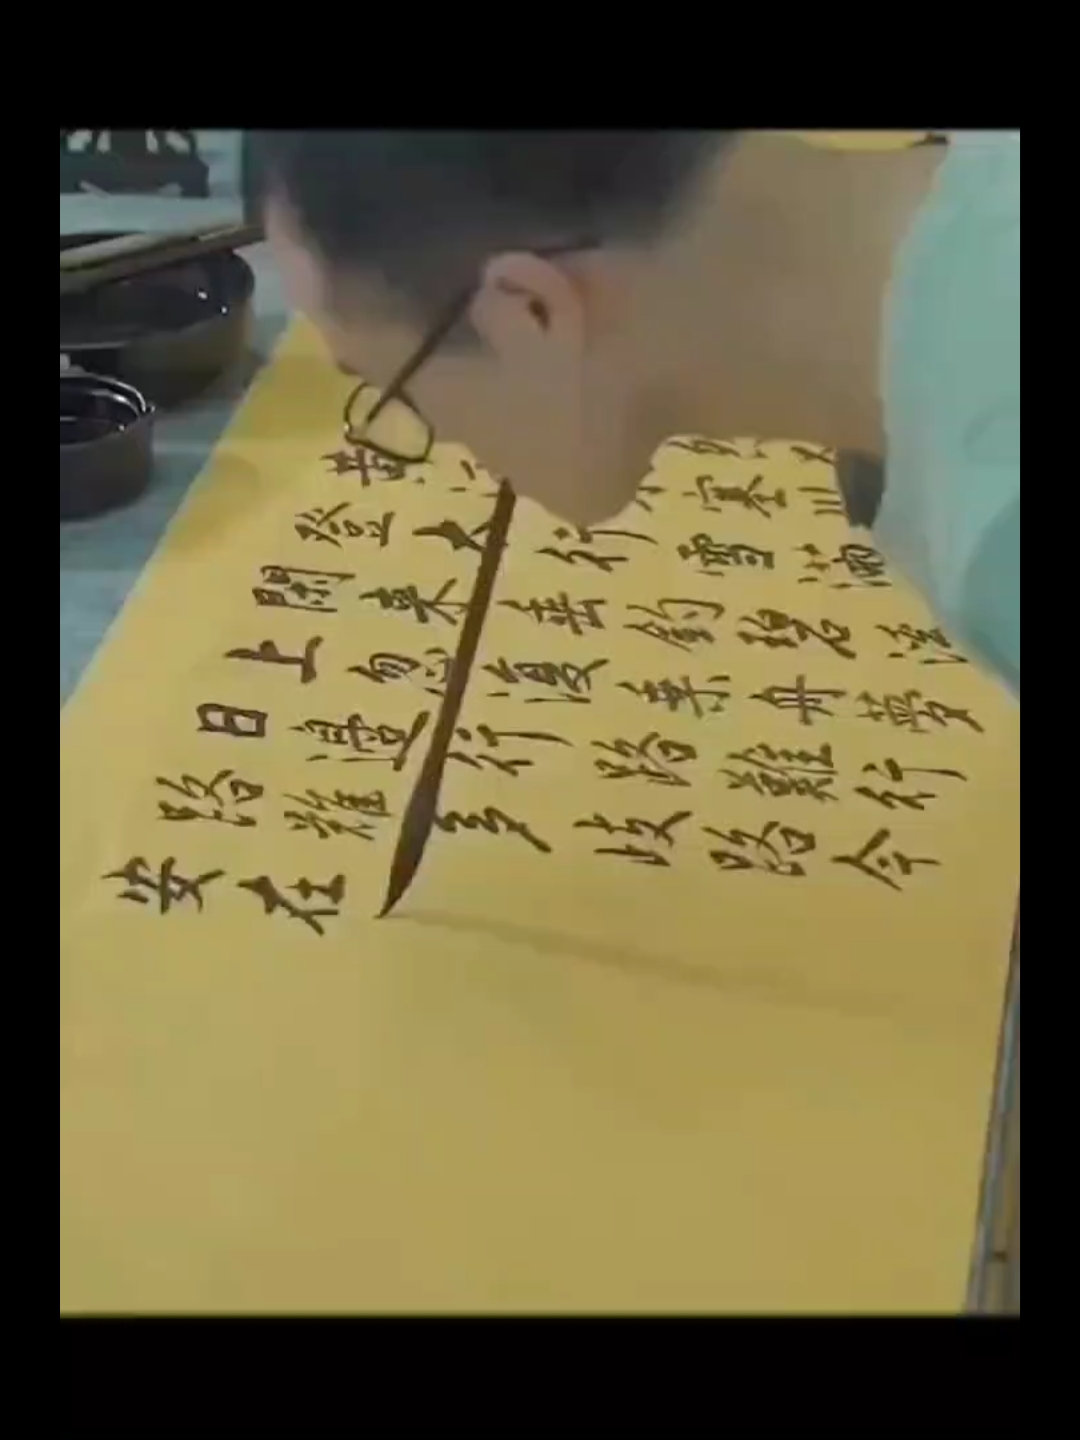 黄 塞川
登太行雪滿
閒來垂釣碧溪
上忽復乘舟夢
日邊行路難行
路難多歧路今
安在